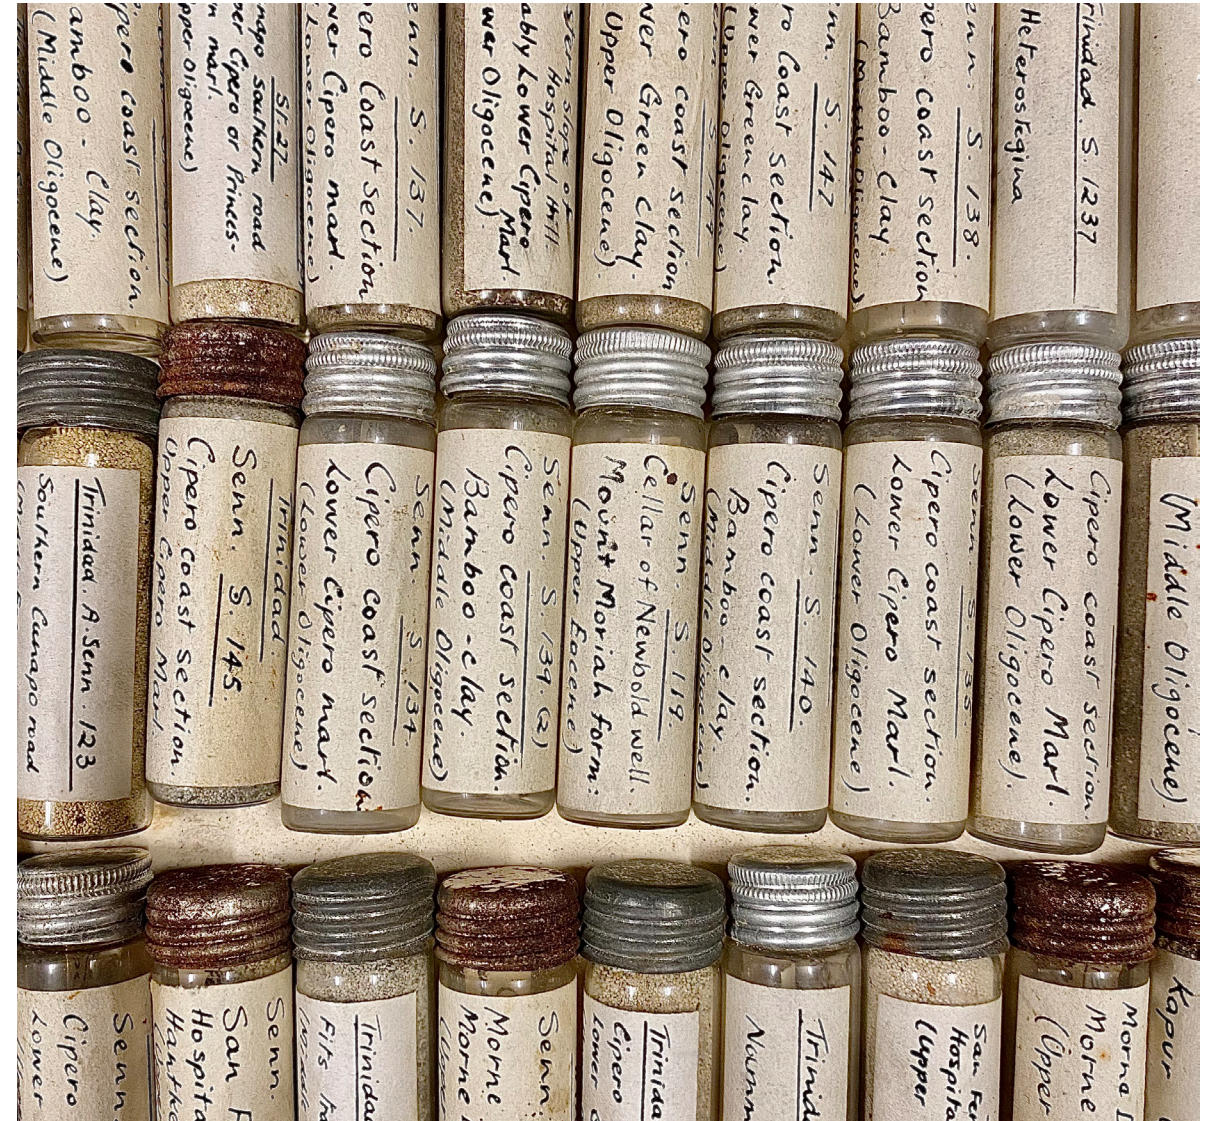 pero coast section.
amboo - Clay.
(Middle Oligocene)
S. 27
ngo southern road
er Cipero or Princes-
n marl.
pper Oligocene)
enn. S. 137.
pero Coast section
wer Cipero marl.
(Lower Oligocene)
stern slope of
Hospital Hill.
ably Lower Cipero
Marl.
wer Oligocene)
ero coast section
wer Green Clay.
Upper Oligocene)
nn. S. 147
ro Coast section.
wer Green clay.
(Upper Oligocene)
enn. S. 138.
pero coast section
Bamboo - Clay
(Middle Oligocene)
Trinidad. S. 1237
Heterostegina
Trinidad. A. Senn. 123
Southern Cunapo road
Trinidad.
Senn. S. 145
Cipero coast section.
Upper Cipero Marl.
Senn. S. 134.
Cipero coast section
Lower Cipero marl.
(Lower Oligocene)
Senn. S. 139. (2)
Cipero coast section.
Bamboo - clay.
(Middle Oligocene)
Senn. S. 119.
Cellar of Newbold well.
Mount Moriah form:
(Upper Eocene)
Senn. S. 140.
Cipero coast section.
Bamboo - clay.
(Middle Oligocene)
Senn. S. 135.
Cipero coast section.
Lower Cipero Marl.
(Lower Oligocene).
Cipero coast section.
Lower Cipero Marl.
(Lower Oligocene).
(Middle Oligocene)
Senn.
Cipero
Lower
Senn.
San F
Hospita
Hantke
Trinidad
Fits
Senn.
Morne
Morne
Trinida
Cipero
Lower
Trinid
Numm
San Fer
Hospita
(Upper
Morne
Morne
(Upper
Kapur